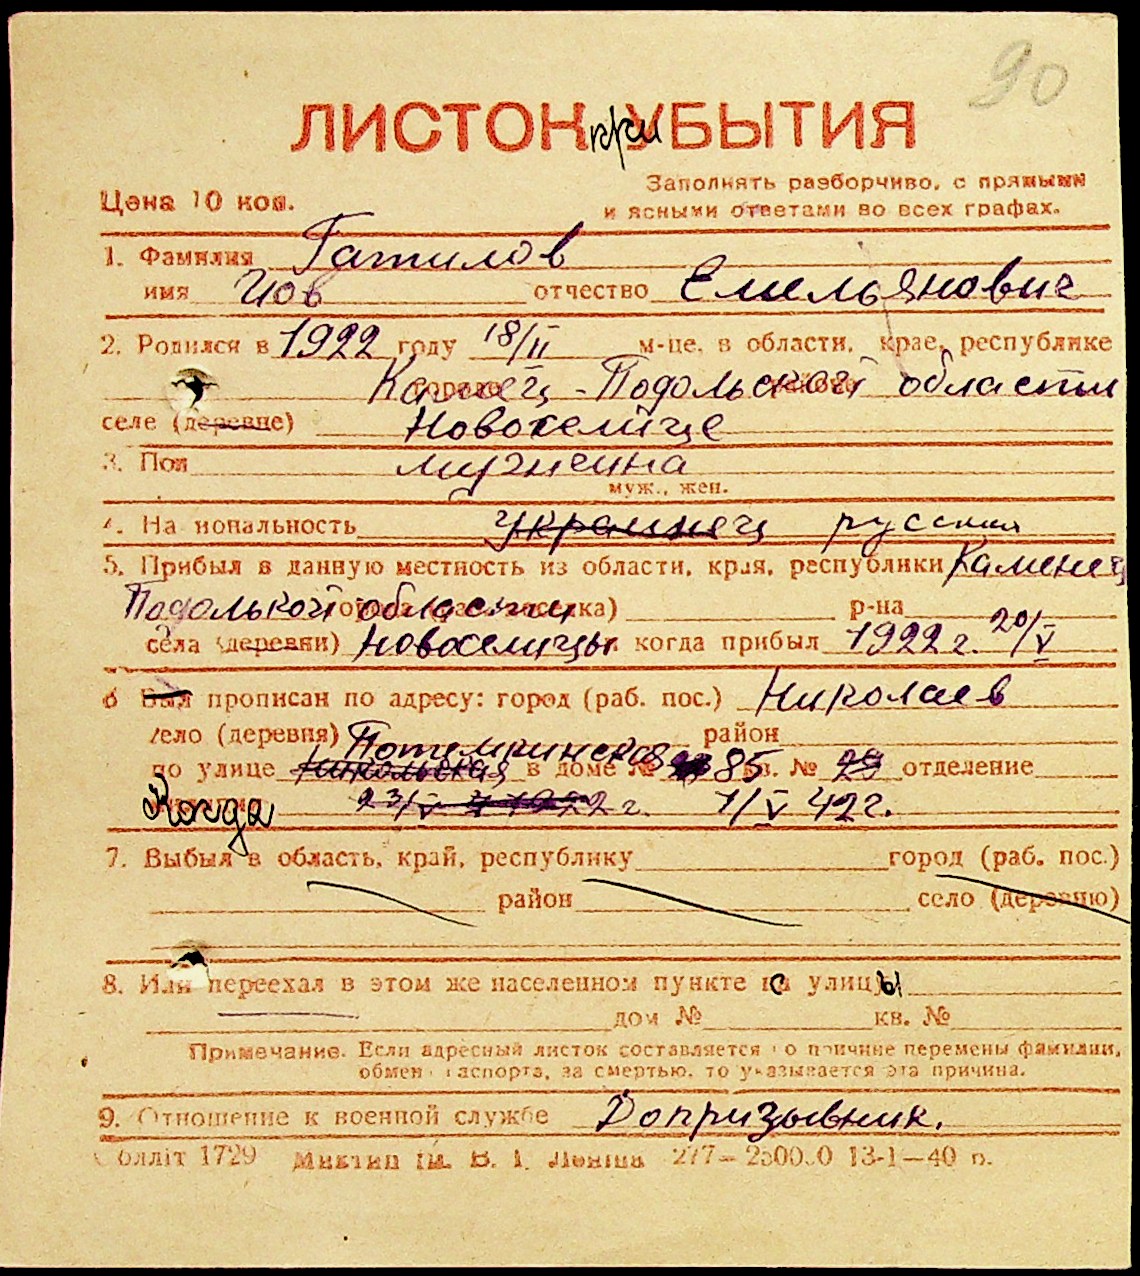 90
ЛИСТОК при УБЫТИЯ
Заполнять разборчиво, с прямыми
Цена 10 коп.
и ясными ответами во всех графах.
1. Фамилия Гатилов
имя Иов отчество Емельянович
2. Родился в 1922 году 18/II м-це, в области, крае, республике
Камец-Подольской области
селе (деревне) Новоселице
3. Пол мужчина
муж., жен.
4. Национальность украинец русский
5. Прибыл в данную местность из области, края, республики Каменец
Подолькой области р-на
села (деревни) Новоселицы когда прибыл 1922 г. 20/V
6 Был прописан по адресу: город (раб. пос.) Николаев
село (деревня) Потемкинская район
по улице Никольская в доме № 85 кв. № 29 отделение
Когда 23/V 1922 г. 1/V 42 г.
7. Выбыл в область, край, республику город (раб. пос.)
район село (деревню)
8. Или переехал в этом же населенном пункте с улицы
дом № кв. №
Примечание. Если адресный листок составляется по причине перемены фамилии,
обмена паспорта, за смертью, то указывается эта причина.
9. Отношение к военной службе Допризывник.
Облліт 1729 Миктип ім. В. І. Леніна 277—250000 13-1—40 р.